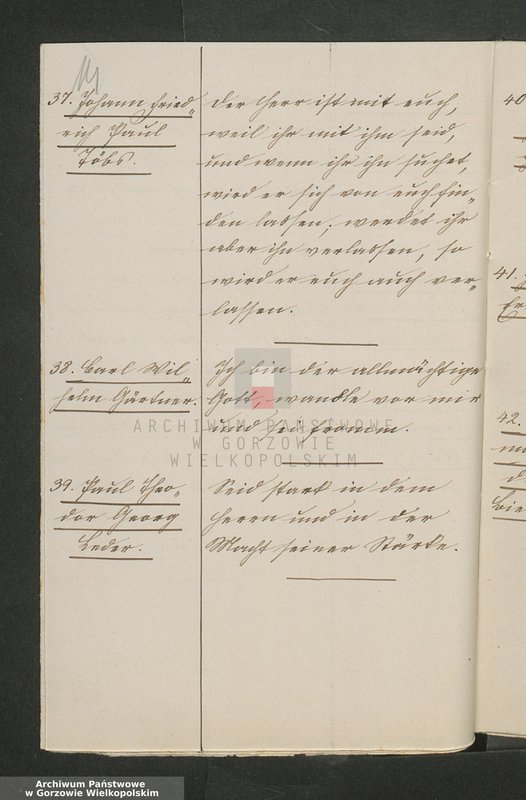 37. Johann Fried=
rich Paul
Töbs.
Der Herr ist mit euch,
weil ihr mit ihm seid,
und wenn ihr ihn suchet,
wird er sich von euch fin=
den lassen; werdet ihr
aber ihn verlassen, so
wird er euch auch ver=
lassen.
38. Carl Wil=
helm Gärtner.
Ich bin der allmächtige
Gott, wandle vor mir
und sei fromm.
39. Paul Theo=
dor Georg
Leder.
Seid stark in dem
Herrn und in der
Macht seiner Stärke.
40
41.
42.
ARCHIWUM PAŃSTWOWE
W GORZOWIE
WIELKOPOLSKIM
Archiwum Państwowe
w Gorzowie Wielkopolskim